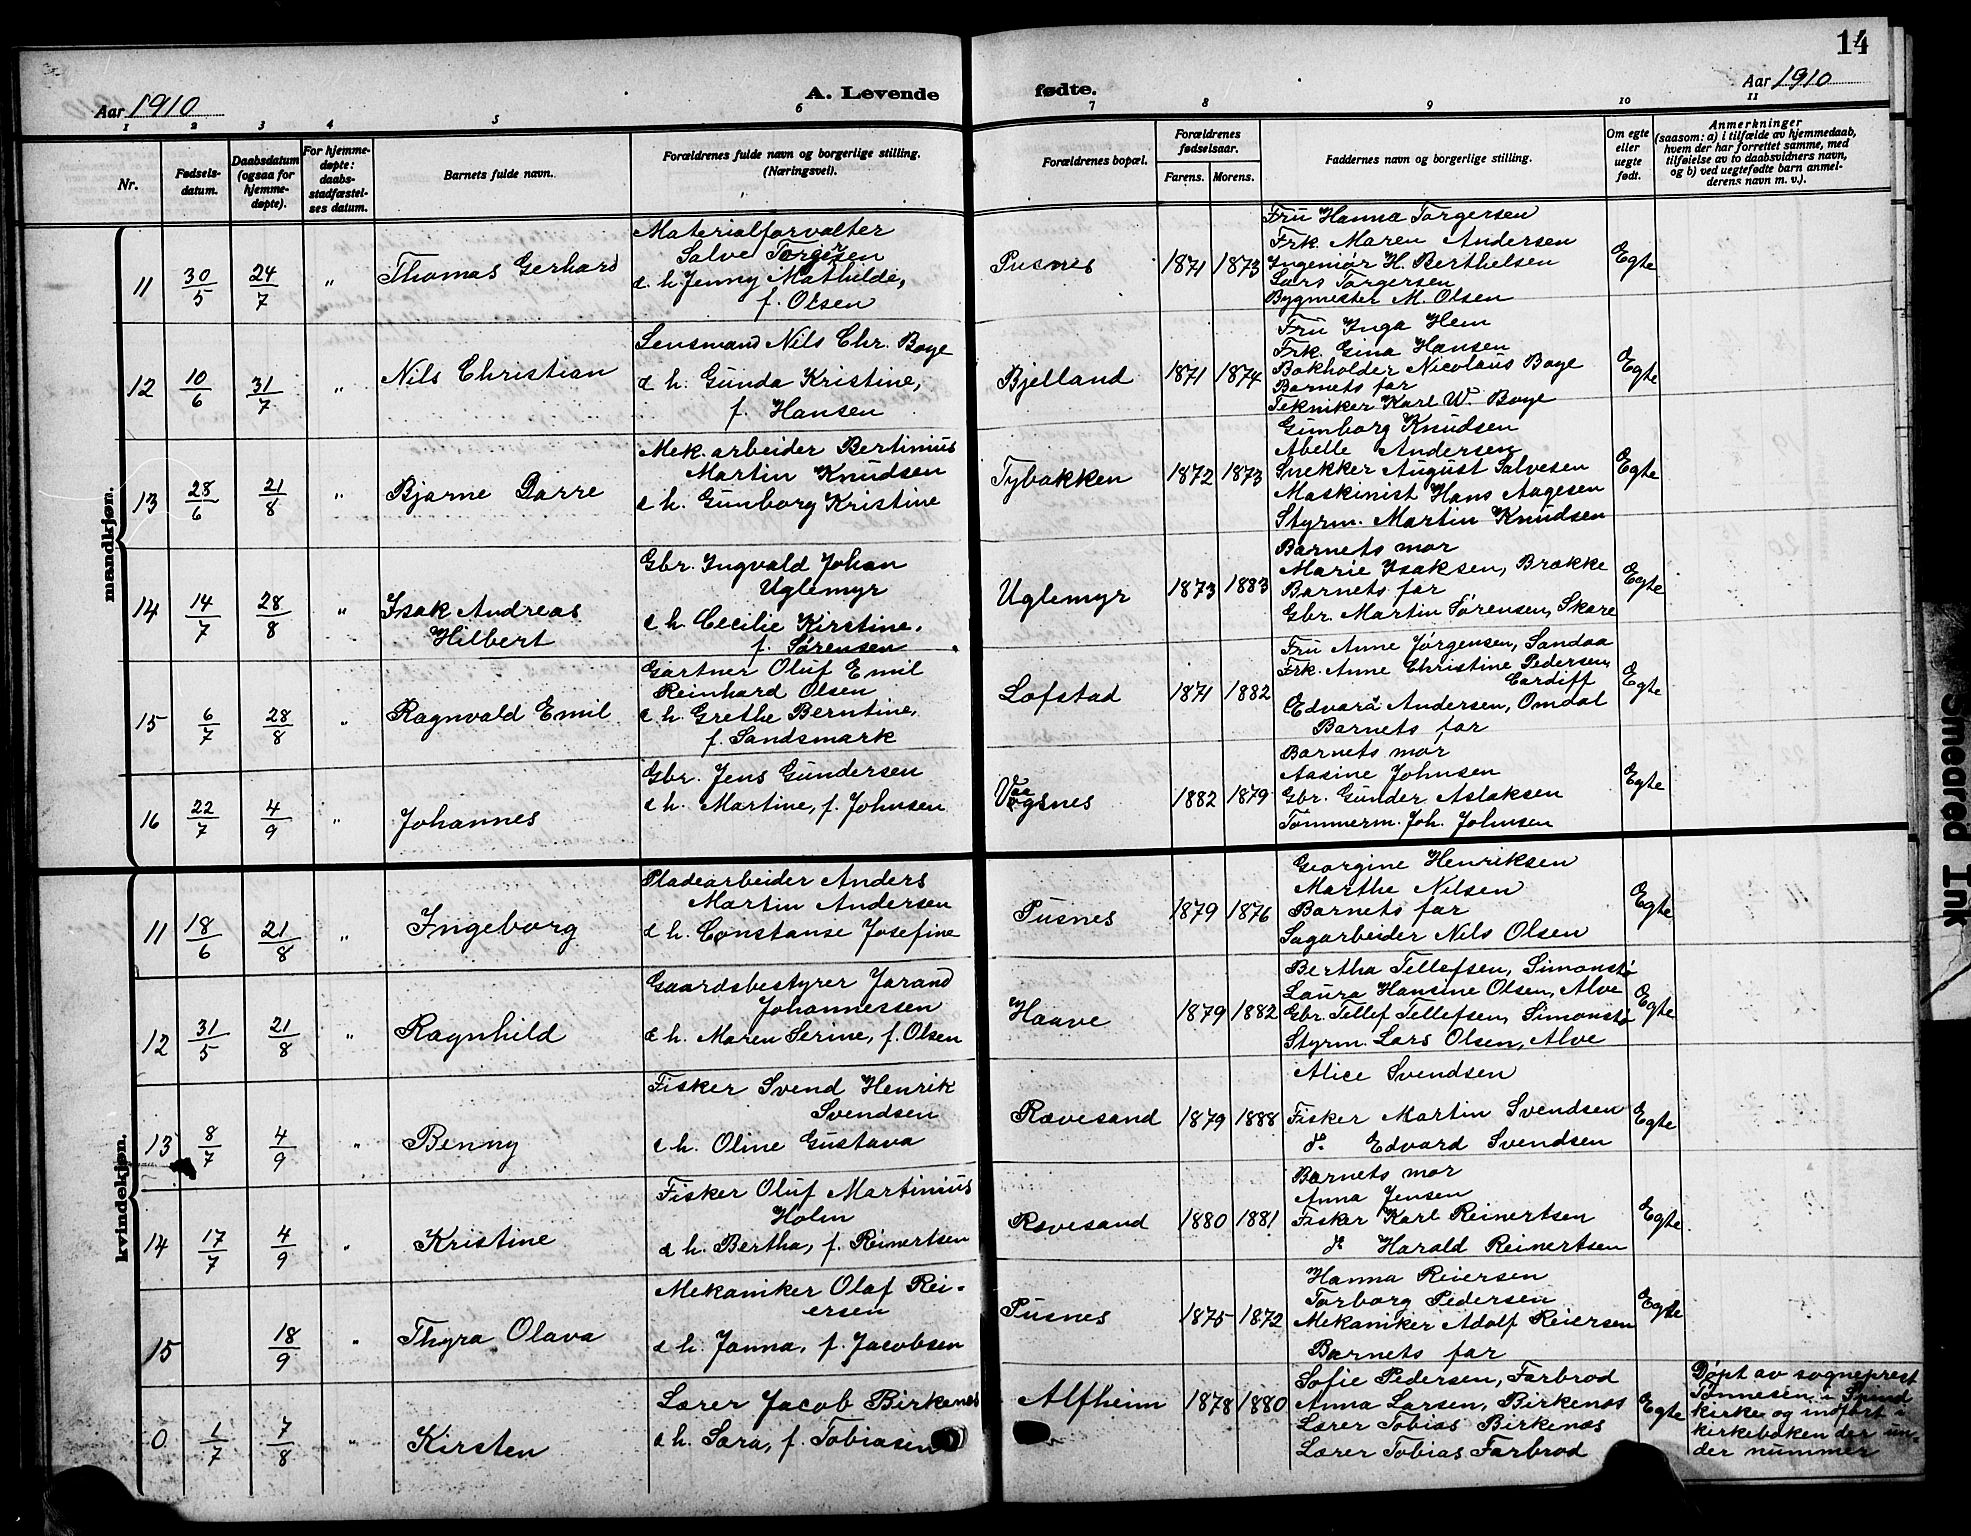 14
Aar 1910
A. Levende fødte.
Aar 1910
1 2 3 4 5 6 7 8 9 10 11
Nr.
Fødsels-
datum.
Daabsdatum
(ogsaa for
hjemme-
døpte).
For hjemme-
døpte:
daabs-
stadfæstel-
ses datum.
Barnets fulde navn.
Forældrenes fulde navn og borgerlige stilling.
(Næringsvei).
Forældrenes bopæl.
Forældrenes
fødselsaar.
Farens. Morens.
Faddernes navn og borgerlige stilling.
Om egte
eller
uegte
født.
Anmerkninger
(saasom: a) i tilfælde av hjemmedaab,
hvem der har forrettet samme, med
tilføielse av to daabsvidners navn,
og b) ved uegtefødte barn anmel-
derens navn m. v.).
mandkjøn.
11 30/5 24/7 " Thomas Gerhard
Materialforvalter
Salve Torgersen
& h. Jenny Mathilde,
f. Olsen
Pusnes 1871 1873
Fru Hanna Torgersen
Frk. Maren Andersen
Ingeniør H. Berthelsen
Lars Torgersen
Bygmester M. Olsen
Egte
12 10/6 31/7 " Nils Christian
Lensmand Nils Chr. Boye
& h. Gunda Kristine,
f. Hansen
Bjelland 1871 1874
Fru Inga Hem
Frk. Gina Hansen
Bokholder Nicolaus Boye
Barnets far
Tekniker Karl W. Boye
Egte
13 28/6 21/8 " Bjarne Dorre
Mek. arbeider Bertinius
Martin Knudsen
& h. Gunborg Kristine
Tybakken 1872 1873
Gunborg Knudsen
Abelle Andersen
Snekker August Salvesen
Maskinist Hans Aagesen
Styrm. Martin Knudsen
Egte
14 14/7 28/8 " Isak Andreas
Hilbert
Gbr. Ingvald Johan
Uglemyr
& h. Cecilie Kirstine,
f. Sørensen
Uglemyr 1873 1883
Barnets mor
Marie Isaksen, Brække
Barnets far
Gbr. Martin Sørensen, Skare
Egte
15 6/7 28/8 " Ragnvald Emil
Gartner Oluf Emil
Reinhard Olsen
& h. Grethe Berntine,
f. Sandsmark
Lofstad 1871 1882
Fru Anne Jørgensen, Sandaa
Frk. Anne Christine Pedersen,
Cardiff
Edvard Andersen, Omdal
Barnets far
Egte
16 22/7 4/9 " Johannes
Gbr. Jens Gundersen
& h. Martine, f. Johnsen
Vaagsnes 1882 1879
Barnets mor
Aasine Johnsen
Gbr. Gunder Aslaksen
Tømmerm. Joh. Johnsen
Egte
kvindekjøn.
11 18/6 21/8 " Ingeborg
Pladearbeider Anders
Martin Andersen
& h. Constanse Josefine
Pusnes 1879 1876
Georgine Henriksen
Marthe Nilsen
Barnets far
Sagarbeider Nils Olsen
Egte
12 31/5 21/8 " Ragnhild
Gaardsbestyrer Jarand
Johannessen
& h. Maren Serine, f. Olsen
Haave 1879 1882
Bertha Tellefsen, Simonstø
Laura Hansine Olsen, Alve
Gbr. Tellef Tellefsen, Simonstø
Styrm. Lars Olsen, Alve
Egte
13 8/7 4/9 " Benny
Fisker Svend Henrik
Svendsen
& h. Oline Gustava
Rævesand 1879 1888
Alice Svendsen
Fisker Martin Svendsen
do. Edvard Svendsen
Egte
14 17/7 4/9 " Kristine
Fisker Oluf Martinius
Holm
& h. Bertha, f. Reinertsen
Rævesand 1880 1881
Barnets mor
Anna Jensen
Fisker Karl Reinertsen
do Harald Reinertsen
Egte
15 18/9 " Thyra Olava
Mekaniker Olaf Rei-
ersen
& h. Janna, f. Jacobsen
Pusnes 1875 1872
Hanna Reiersen
Torborg Pedersen
Mekaniker Adolf Reiersen
Barnets far
Egte
0 1/7 7/8 " Kirsten
Lærer Jacob Birkenes
& h. Sara, f. Tobiasen
Alfheim 1878 1880
Sofie Pedersen, Farbrod
Anna Larsen, Birkenæs
Lærer Tobias Birkenæs
Lærer Tobias Farbrod
Egte
Døpt av sogneprest
Tønnesen i Spind
kirke og indført i
kirkeboken der un-
der nummer
Smeared Ink